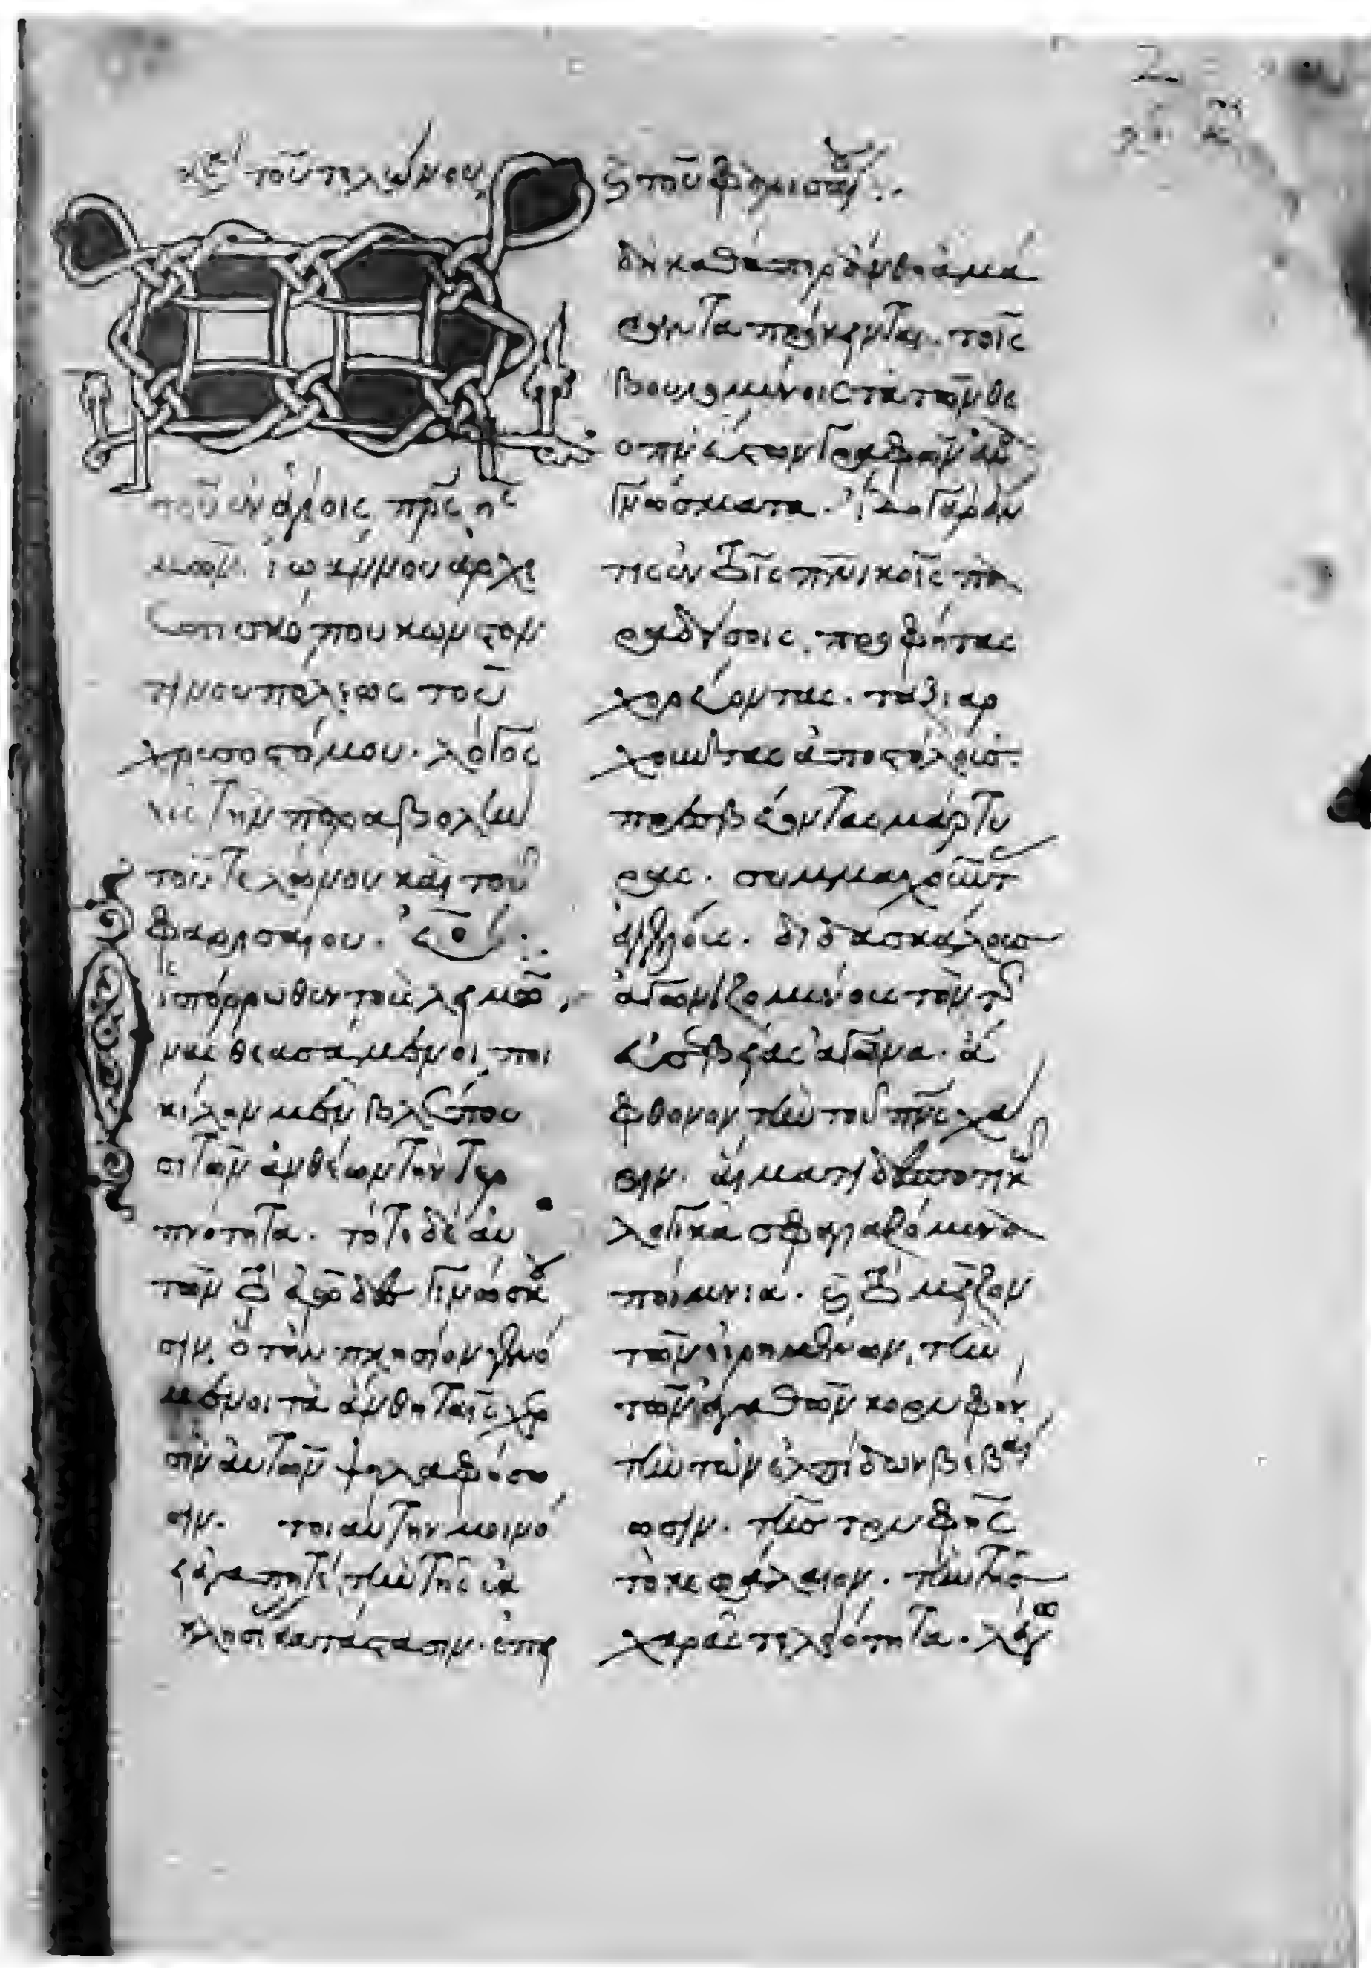 κυ τοῦ τελώνου ϗ τοῦ φαρισαίου
τοῦ ἐν ἁγίοις πρς η
μῶν ἰωάννου ἀρχι
επισκόπου κωνσταν
τινουπόλεως τοῦ
χρυσοστόμου. λόγος
εἰς τὴν παραβολὴν
τοῦ τελώνου καὶ τοῦ
φαρισαίου.
οἱ πόρρωθεν τοὺς λειμῶ
νας θεασάμενοι, ποι
κίλην μὲν βλέπου
σι τῶν ἀνθέων τὴν τερ
πνότητα. τότε δὲ αυ
τῶν
σιν, ὅταν πλησίον γενό
μενοι τὰ ἄνθη ταῖς χερ
σὶν αὐτῶν ψηλαφήσω
σιν. τοιαύτην μοι νό
ει ἀγαπητὲ τὴν τῆς ἐκ
κλησίας κατάστασιν. ἐπει
δὴ καθάπερ ἄνθη ἀμά
ραντα πρόκεινται τοῖς
βουλομένοις τὰ τῶν θε
οπνεύστων γραφῶν ἀνα
γνώσματα.
τις ἐν αὐταῖς πνικαῖς πα
ραδείσοις, προφήτας
χορεύοντας. πατριάρ
χοῦντας ἀποστόλους.
πρεσβεύοντας μάρτυ
ρας. συμμαχοῦντ
ἀγγέλους. διδασκάλους
ἀγωνιζομένους τὸν τ
εὐσεβείας ἀγῶνα. ἄ
φθονον τὴν τοῦ πνς χά
ριν. αἵματι δεσποτικῶ
λογικὰ σφραγιζόμενα
ποίμνια. ϗ τὸ μεῖζον
τῶν εἰρημένων, τὴν
τῶν ἀγαθῶν κορυφήν,
τὴν τῶν ἐλπίδων βεβαί
ωσιν. τῆς τρυφῆς
τὸ κεφάλαιον. τὴν τῆς
χαρᾶς τελειότητα. λέγω